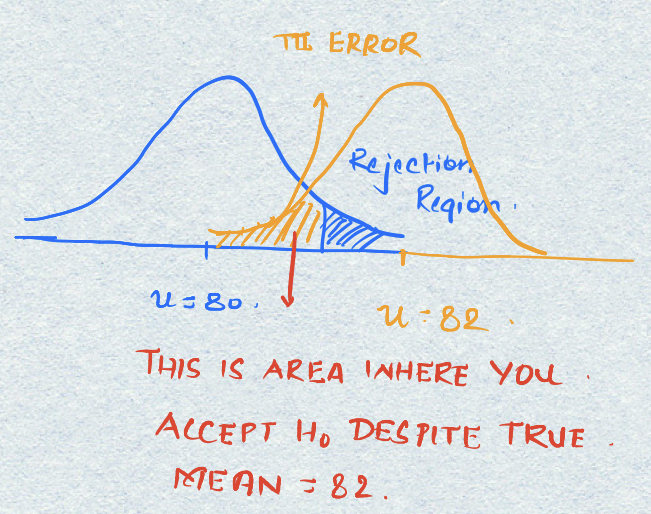 TII ERROR
Rejection
Region.
u = 80.
u = 82.
THIS IS AREA WHERE YOU.
ACCEPT H₀ DESPITE TRUE.
MEAN = 82.